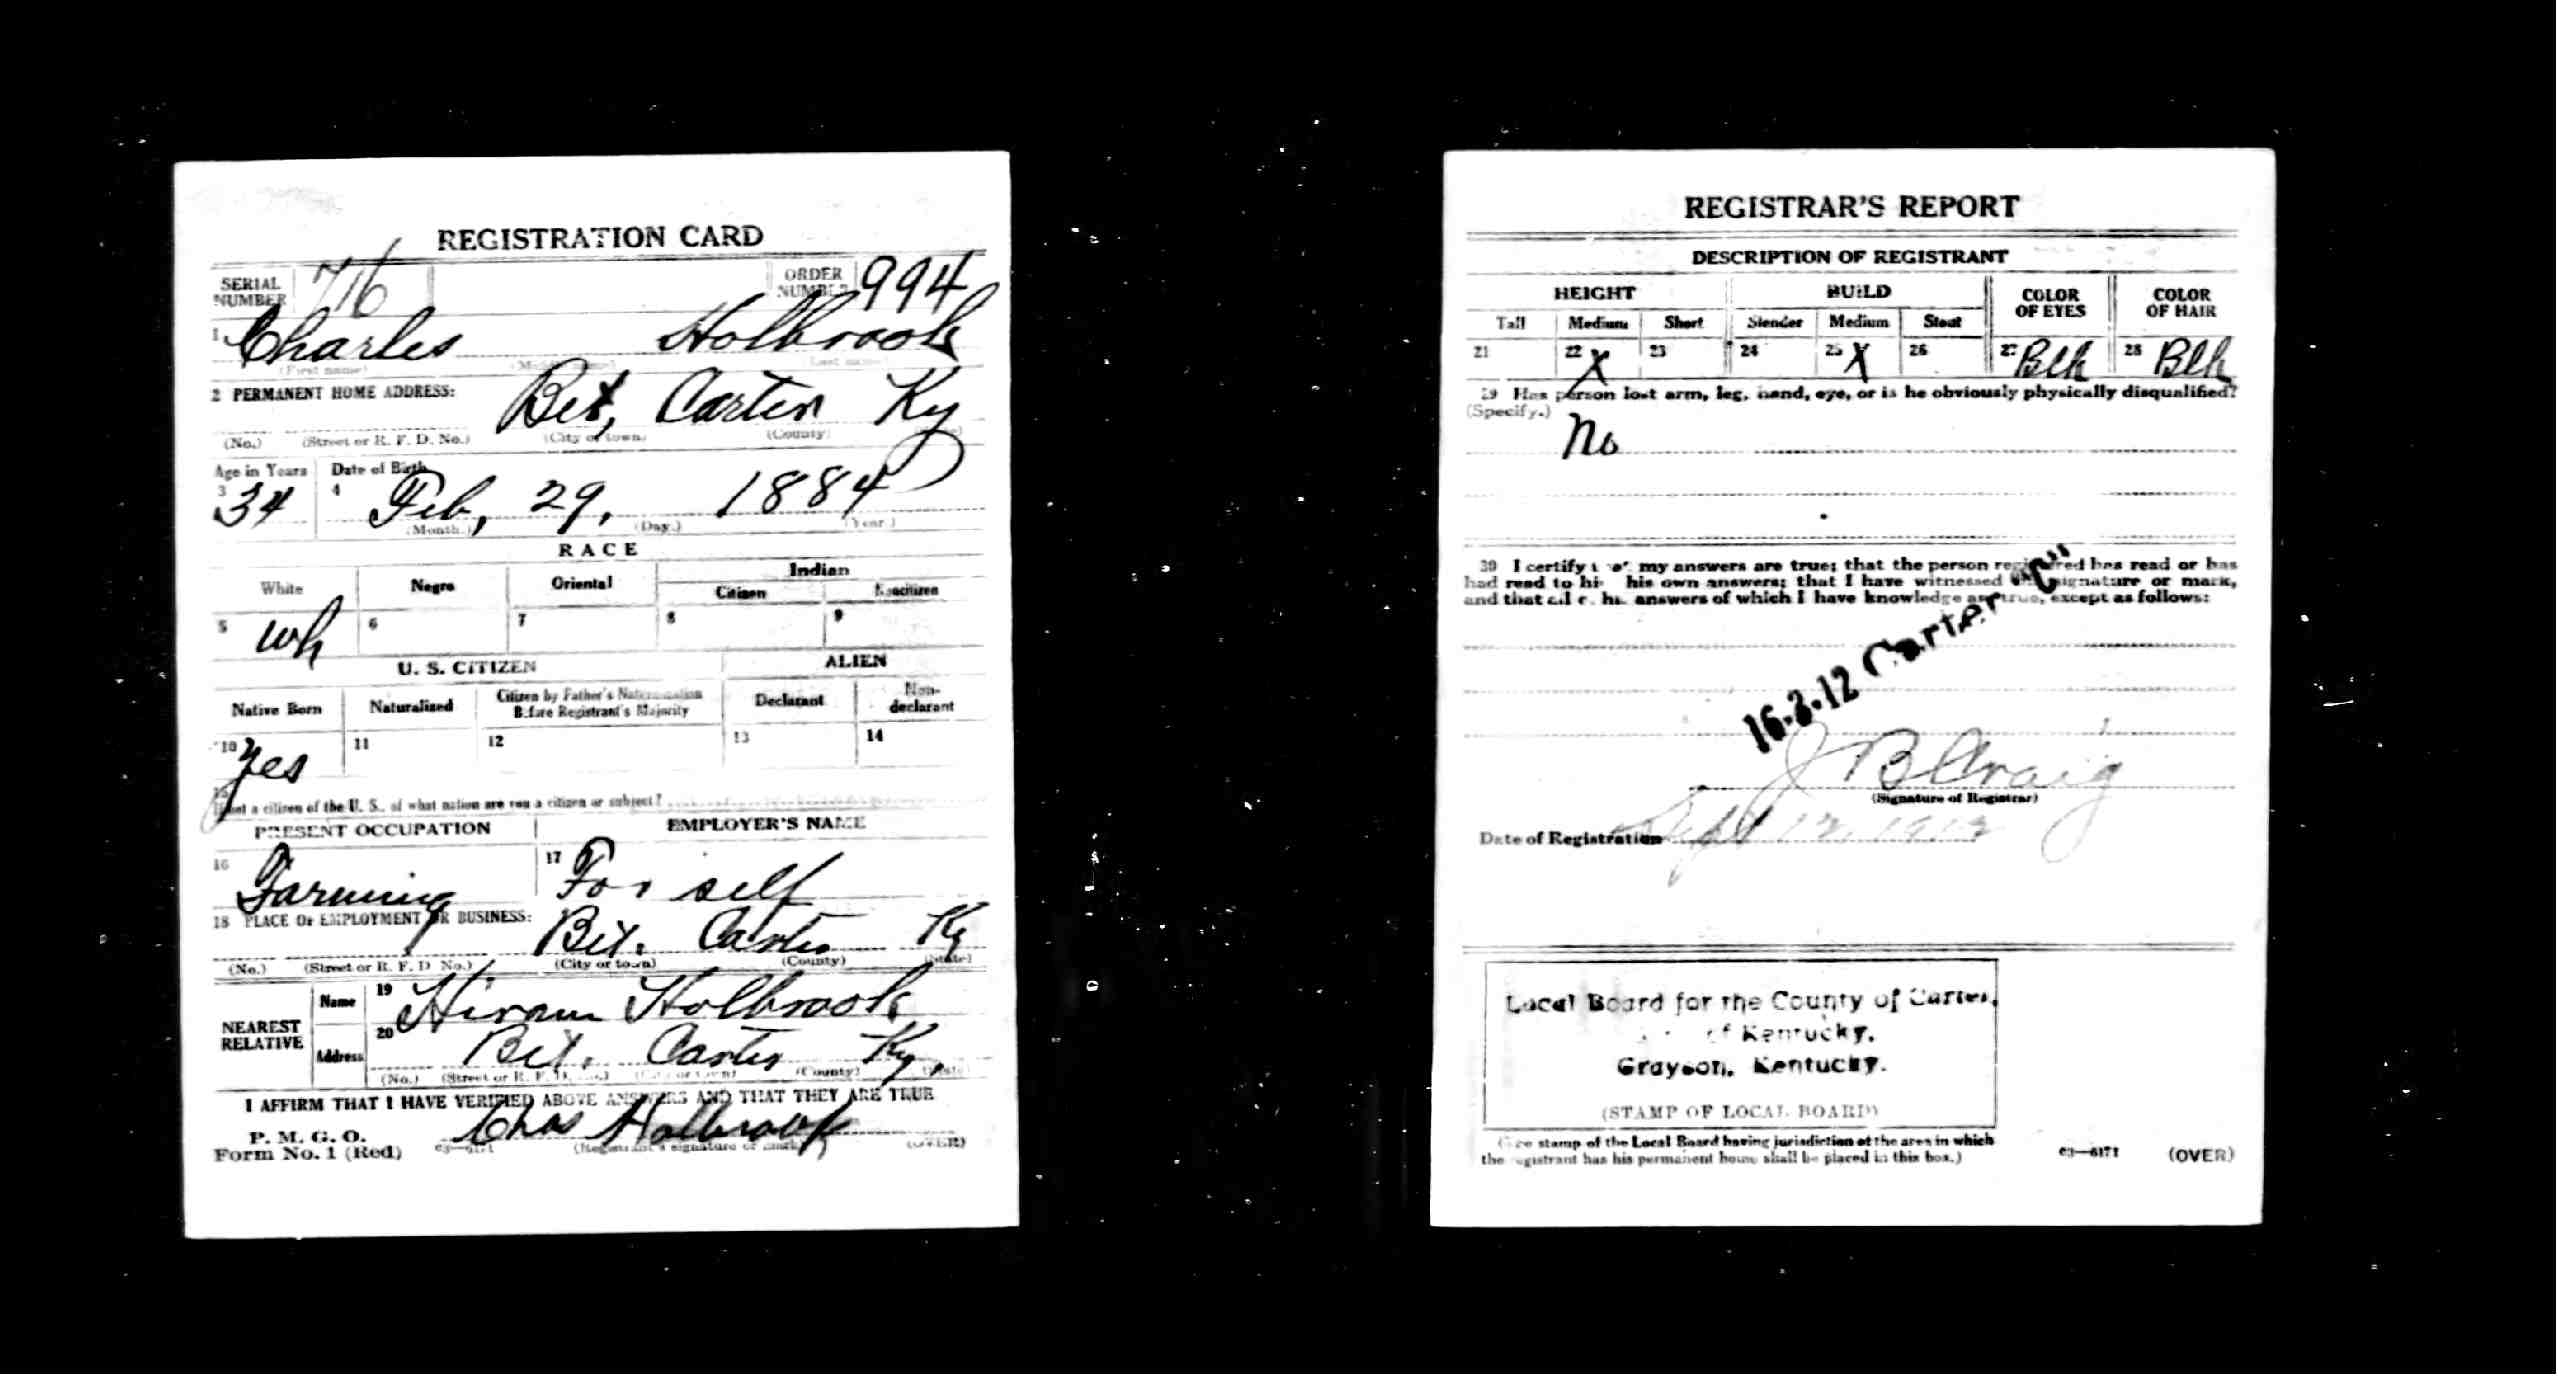 REGISTRATION CARD
SERIAL NUMBER 716 ORDER NUMBER 994
1 Charles Holbrook
(First name) (Middle name) (Last name)
2 PERMANENT HOME ADDRESS: Bet, Carter Ky
(No.) (Street or R. F. D. No.) (City or town) (County) (State)
Age in Years Date of Birth
3 34 4 Feb, 29, 1884
(Month.) (Day.) (Year.)
RACE
White Negro Oriental Indian
Citizen Noncitizen
5 wh 6 7 8 9
U. S. CITIZEN ALIEN
Native Born Naturalized Citizen by Father's Naturalization Before Registrant's Majority Declarant Non-declarant
10 Yes 11 12 13 14
15 If not a citizen of the U. S., of what nation are you a citizen or subject?
PRESENT OCCUPATION EMPLOYER'S NAME
16 Farming 17 For self
18 PLACE OF EMPLOYMENT OR BUSINESS: Bet. Carter Ky
(No.) (Street or R. F. D. No.) (City or town) (County) (State)
NEAREST RELATIVE Name 19 Hiram Holbrook
Address 20 Bet. Carter Ky,
(No.) (Street or R. F. D. No.) (City or town) (County) (State)
I AFFIRM THAT I HAVE VERIFIED ABOVE ANSWERS AND THAT THEY ARE TRUE
P. M. G. O.
Form No. 1 (Red) 03—6171 Chas Holbrook (Registrant's signature or mark) (OVER)
REGISTRAR'S REPORT
DESCRIPTION OF REGISTRANT
HEIGHT BUILD COLOR OF EYES COLOR OF HAIR
Tall Medium Short Slender Medium Stout
21 22 X 23 24 25 X 26 27 Blk 28 Blk
29 Has person lost arm, leg, hand, eye, or is he obviously physically disqualified?
(Specify.)
No
30 I certify that my answers are true; that the person registered has read or has
had read to him his own answers; that I have witnessed his signature or mark,
and that all of his answers of which I have knowledge are true, except as follows:
16-3-12 Carter "C"
J B Craig
(Signature of Registrar)
Date of Registration Sept 12, 1918
Local Board for the County of Carter,
of Kentucky.
Grayson, Kentucky.
(STAMP OF LOCAL BOARD)
(The stamp of the Local Board having jurisdiction of the area in which
the registrant has his permanent home shall be placed in this box.)
03—6171 (OVER)